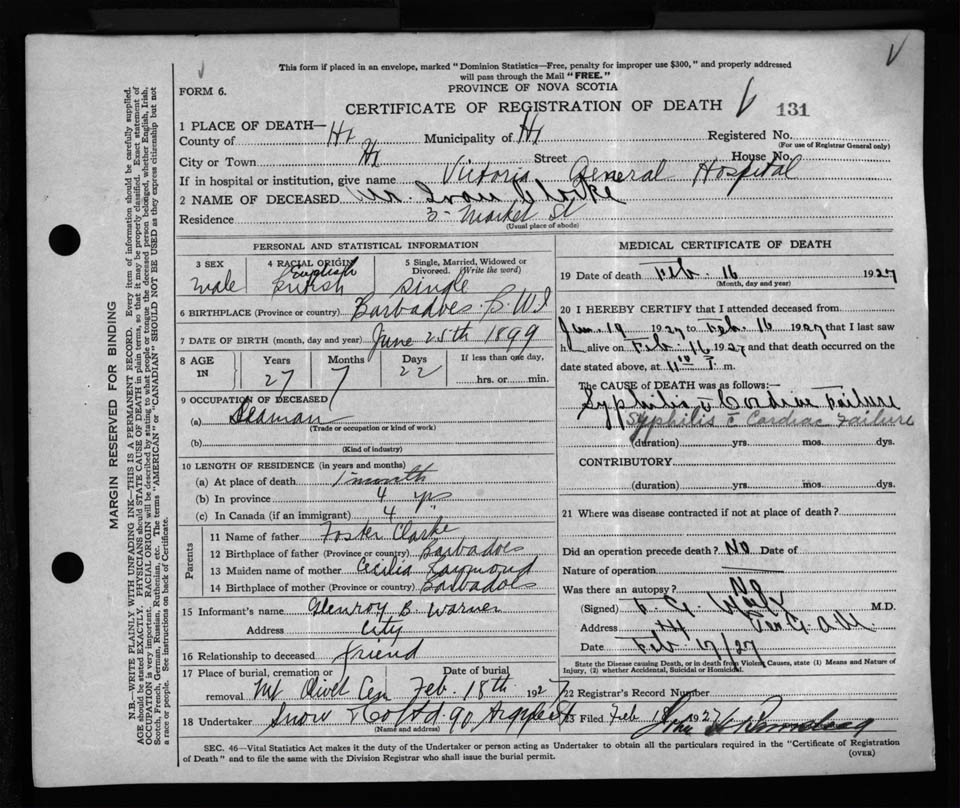 This form if placed in an envelope, marked "Dominion Statistics—Free, penalty for improper use $300," and properly addressed
will pass through the Mail "FREE."
PROVINCE OF NOVA SCOTIA
FORM 6.
CERTIFICATE OF REGISTRATION OF DEATH 131
1 PLACE OF DEATH—
County of Hx Municipality of Hx Registered No.
(For use of Registrar General only)
City or Town Hx Street House No.
If in hospital or institution, give name Victoria General Hospital
2 NAME OF DECEASED Mr. Ivan Clarke
Residence 3- Market St
(Usual place of abode)
PERSONAL AND STATISTICAL INFORMATION
3 SEX 4 RACIAL ORIGIN 5 Single, Married, Widowed or Divorced. (Write the word)
male English British single
6 BIRTHPLACE (Province or country) Barbadoes B.W.I
7 DATE OF BIRTH (month, day and year) June 25th 1899
8 AGE IN Years Months Days If less than one day,
27 7 22 hrs. or min.
9 OCCUPATION OF DECEASED
(a) Seaman
(Trade or occupation or kind of work)
(b)
(Kind of industry)
10 LENGTH OF RESIDENCE (in years and months)
(a) At place of death 1 month
(b) In province 4 yrs
(c) In Canada (if an immigrant) 4
Parents
11 Name of father Foster Clarke
12 Birthplace of father (Province or country) Barbadoes
13 Maiden name of mother Cecilia Raymond
14 Birthplace of mother (Province or country) Barbadoes
15 Informant's name Glenroy B Warner
Address City
16 Relationship to deceased friend
17 Place of burial, cremation or removal Date of burial
Mt Olivet Cem Feb. 18th 1927
18 Undertaker Snow & Co Ltd. 90 Argyle St
(Name and address)
MEDICAL CERTIFICATE OF DEATH
19 Date of death Feb. 16 1927
(Month, day and year)
20 I HEREBY CERTIFY that I attended deceased from
Jan. 19 1927 to Feb. 16 1927 that I last saw
h alive on Feb. 16 1927 and that death occurred on the
date stated above, at 11 P. m.
The CAUSE OF DEATH was as follows:—
Syphilis c Cardiac Failure
Syphilis c Cardiac Failure
(duration) yrs. mos. dys.
CONTRIBUTORY
(duration) yrs. mos. dys.
21 Where was disease contracted if not at place of death?
Did an operation precede death? No Date of
Nature of operation
Was there an autopsy? No
(Signed) M.D.
Address
Date Feb 17/27
State the Disease causing Death, or in death from Violent Causes, state (1) Means and Nature of
Injury, (2) whether Accidental, Suicidal or Homicidal.
22 Registrar's Record Number
23 Filed Feb 1927
SEC. 46—Vital Statistics Act makes it the duty of the Undertaker or person acting as Undertaker to obtain all the particulars required in the "Certificate of Registration
of Death" and to file the same with the Division Registrar who shall issue the burial permit.
(OVER)
MARGIN RESERVED FOR BINDING
N.B.—WRITE PLAINLY WITH UNFADING INK—THIS IS A PERMANENT RECORD. Every item of information should be carefully supplied.
AGE should be stated EXACTLY. PHYSICIANS should STATE CAUSE OF DEATH in plain terms, so that it may be properly classified. Exact statement of
OCCUPATION is very important. RACIAL ORIGIN will be described by stating to what people or tongue the deceased person belonged, whether English, Irish,
Scotch, French, German, Russian, Ruthenian, etc. The terms "AMERICAN" or "CANADIAN" SHOULD NOT BE USED as they express citizenship but not
a race or people. See instructions on back of Certificate.